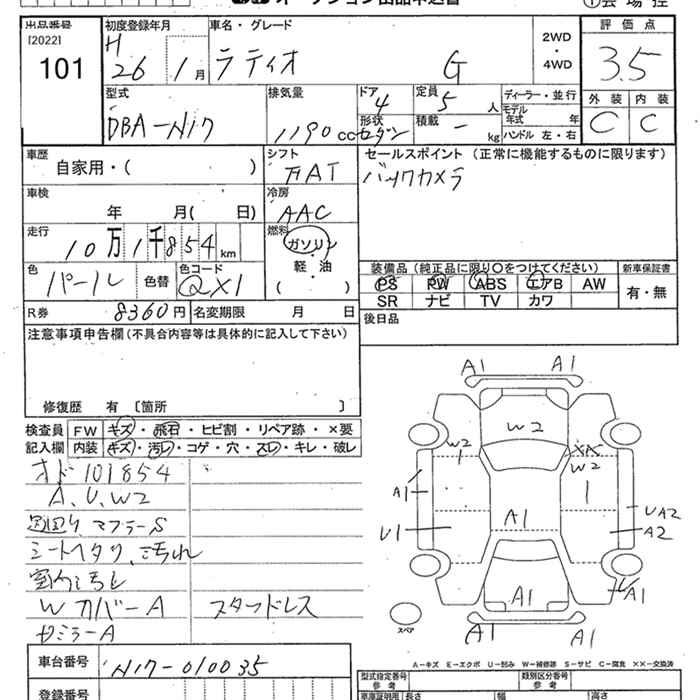 オークション出品申込書
①会場控
出品番号
[2022]
101
初度登録年月
H
26 1月
車名・グレード
ラティオ G
2WD
・
4WD
評価点
3.5
型式
DBA-N17
排気量
1190cc
ドア
4
形状
セダン
定員
5人
積載
- kg
ディーラー・並行
モデル
年式 年
ハンドル 左・右
外装 内装
C C
車歴
自家用・( )
シフト
FAT
セールスポイント (正常に機能するものに限ります)
バックカメラ
車検
年 月( 日)
冷房
AAC
走行
10万1千854km
燃料
ガソリン
・
軽油
( )
色
パール
色替
色コード
QX1
装備品(純正品に限り○をつけてください)
PS PW ABS エアB AW
SR ナビ TV カワ
新車保証書
有・無
R券 8360円
名変期限 月 日
後日品
注意事項申告欄(不具合内容等は具体的に記入して下さい)
修復歴 有 〔箇所 〕
検査員
記入欄
FW キズ・飛石・ヒビ割・リペア跡・×要
内装 キズ・汚レ・コゲ・穴・スレ・キレ・破レ
オド101854
A、U、W2
下回り、マフラーS
シートヘタリ、汚れ
室内汚し
WカバーA スタッドレス
ドミラーA
A1 A1
W2
W2
XX
W2
A1
U1
A1
UA2
A2
A1
A1
A1 A1
スペア
A-キズ E-エクボ U-凹み W-補修跡 S-サビ C-腐食 ××-交換済
車台番号
N17-010035
登録番号
型式指定番号
参考
類別区分番号
参考
車庫証明用
長さ
幅
高さ